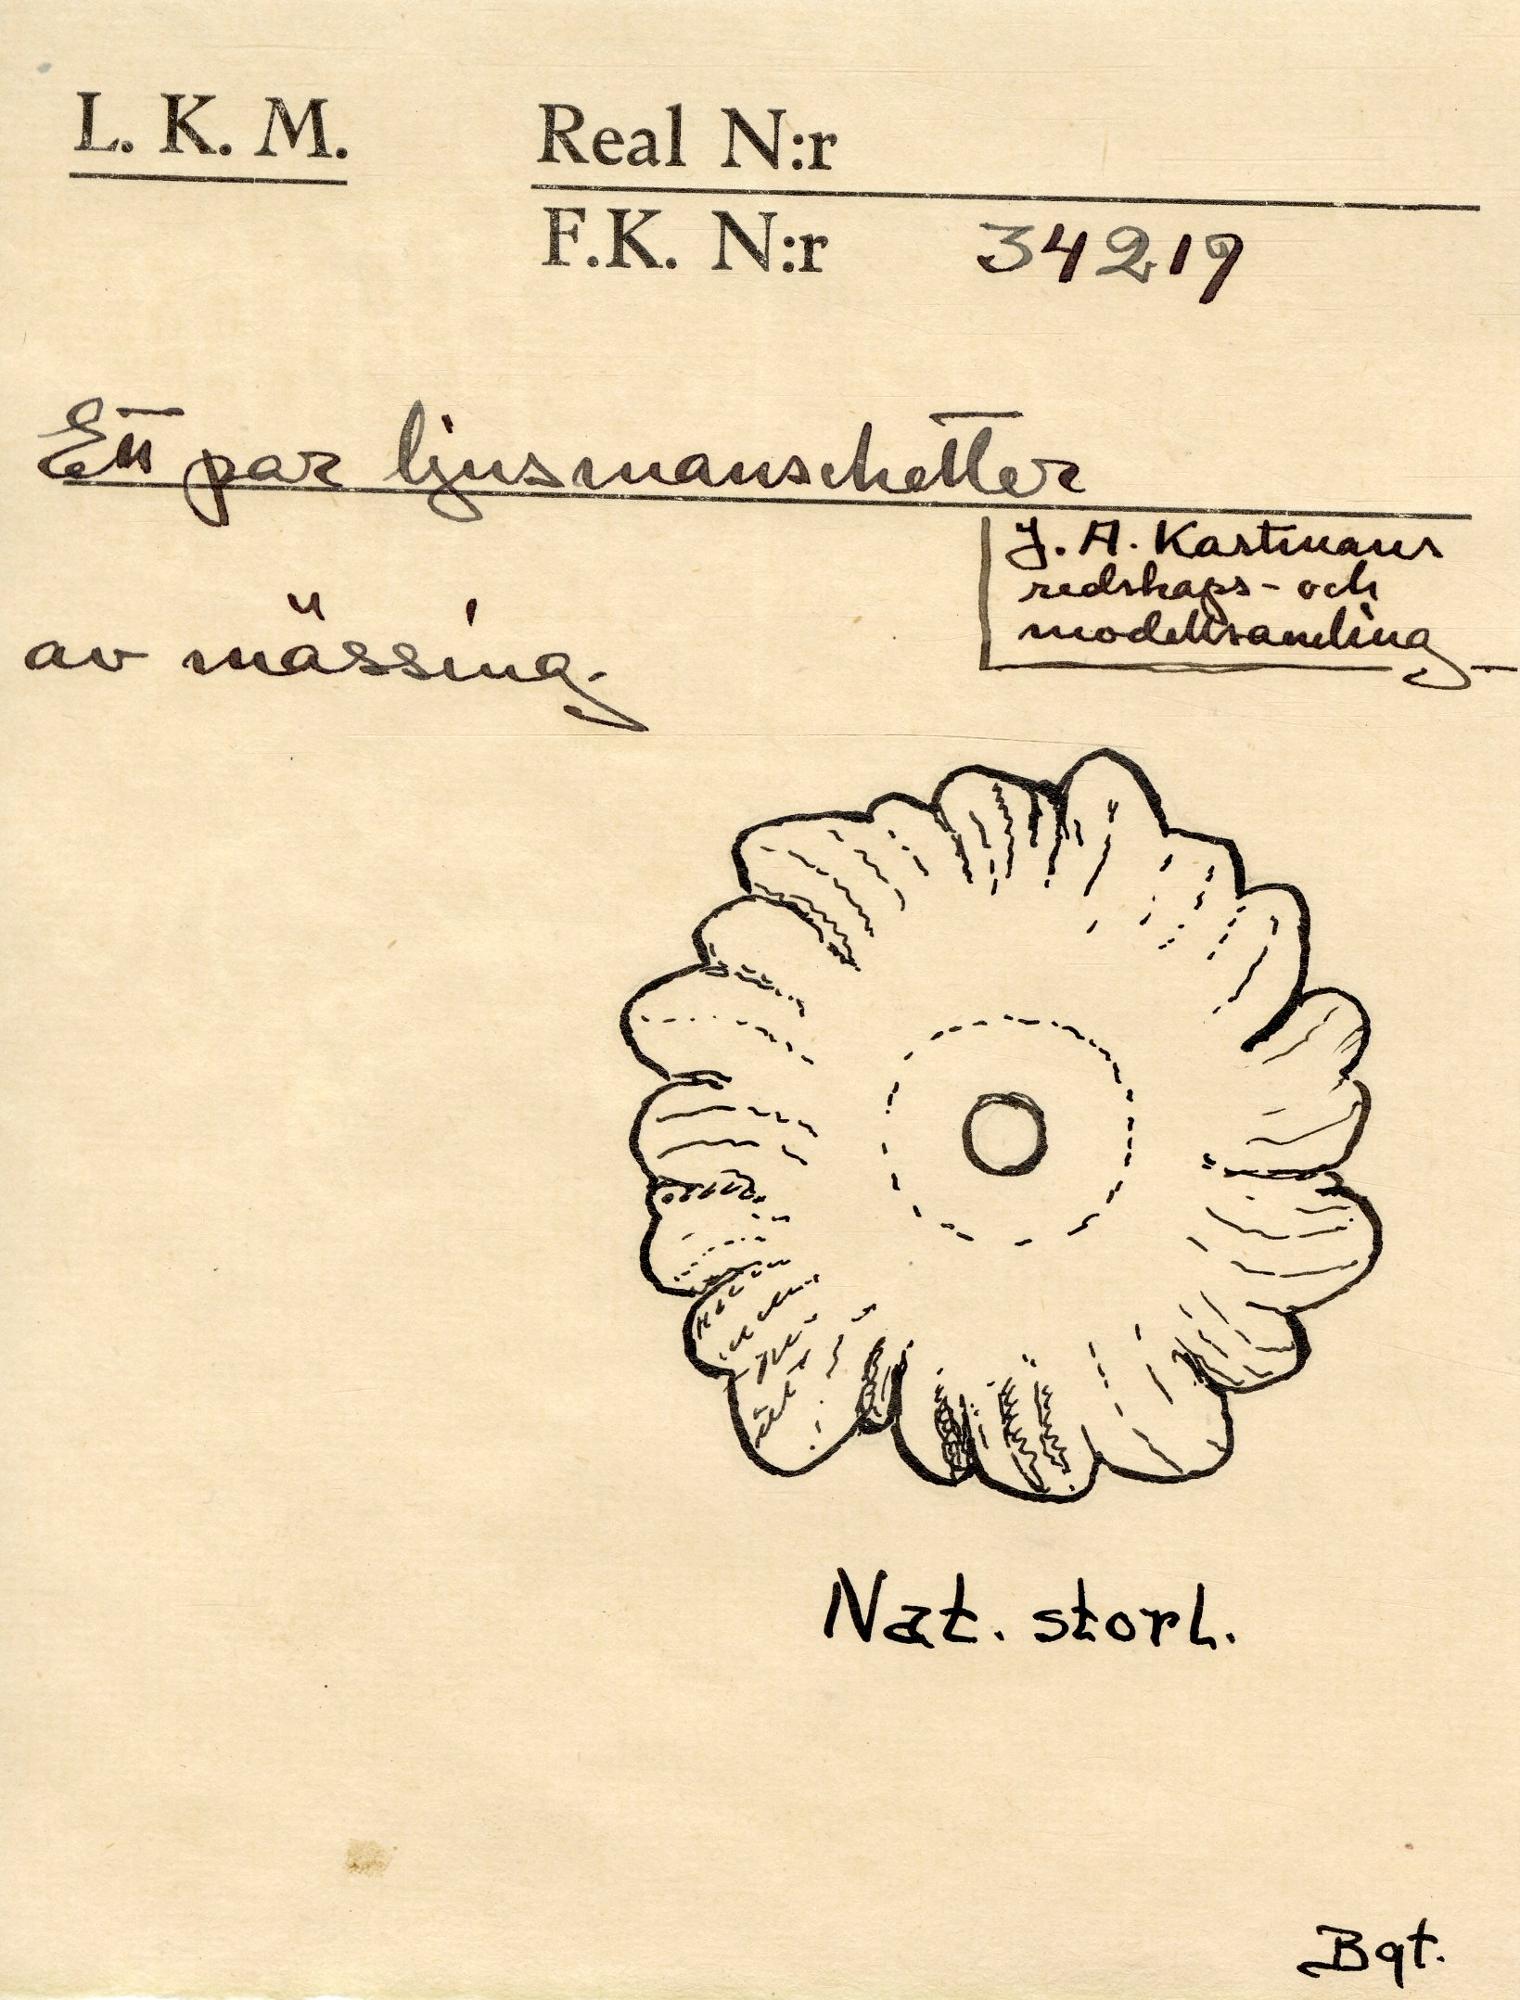 L. K. M.
Real N:r
F.K. N:r 34219
Ett par ljusmanschetter
J. A. Kastmans
redskaps- och
modellsamling
av mässing.
Nat. storl.
Bgt.